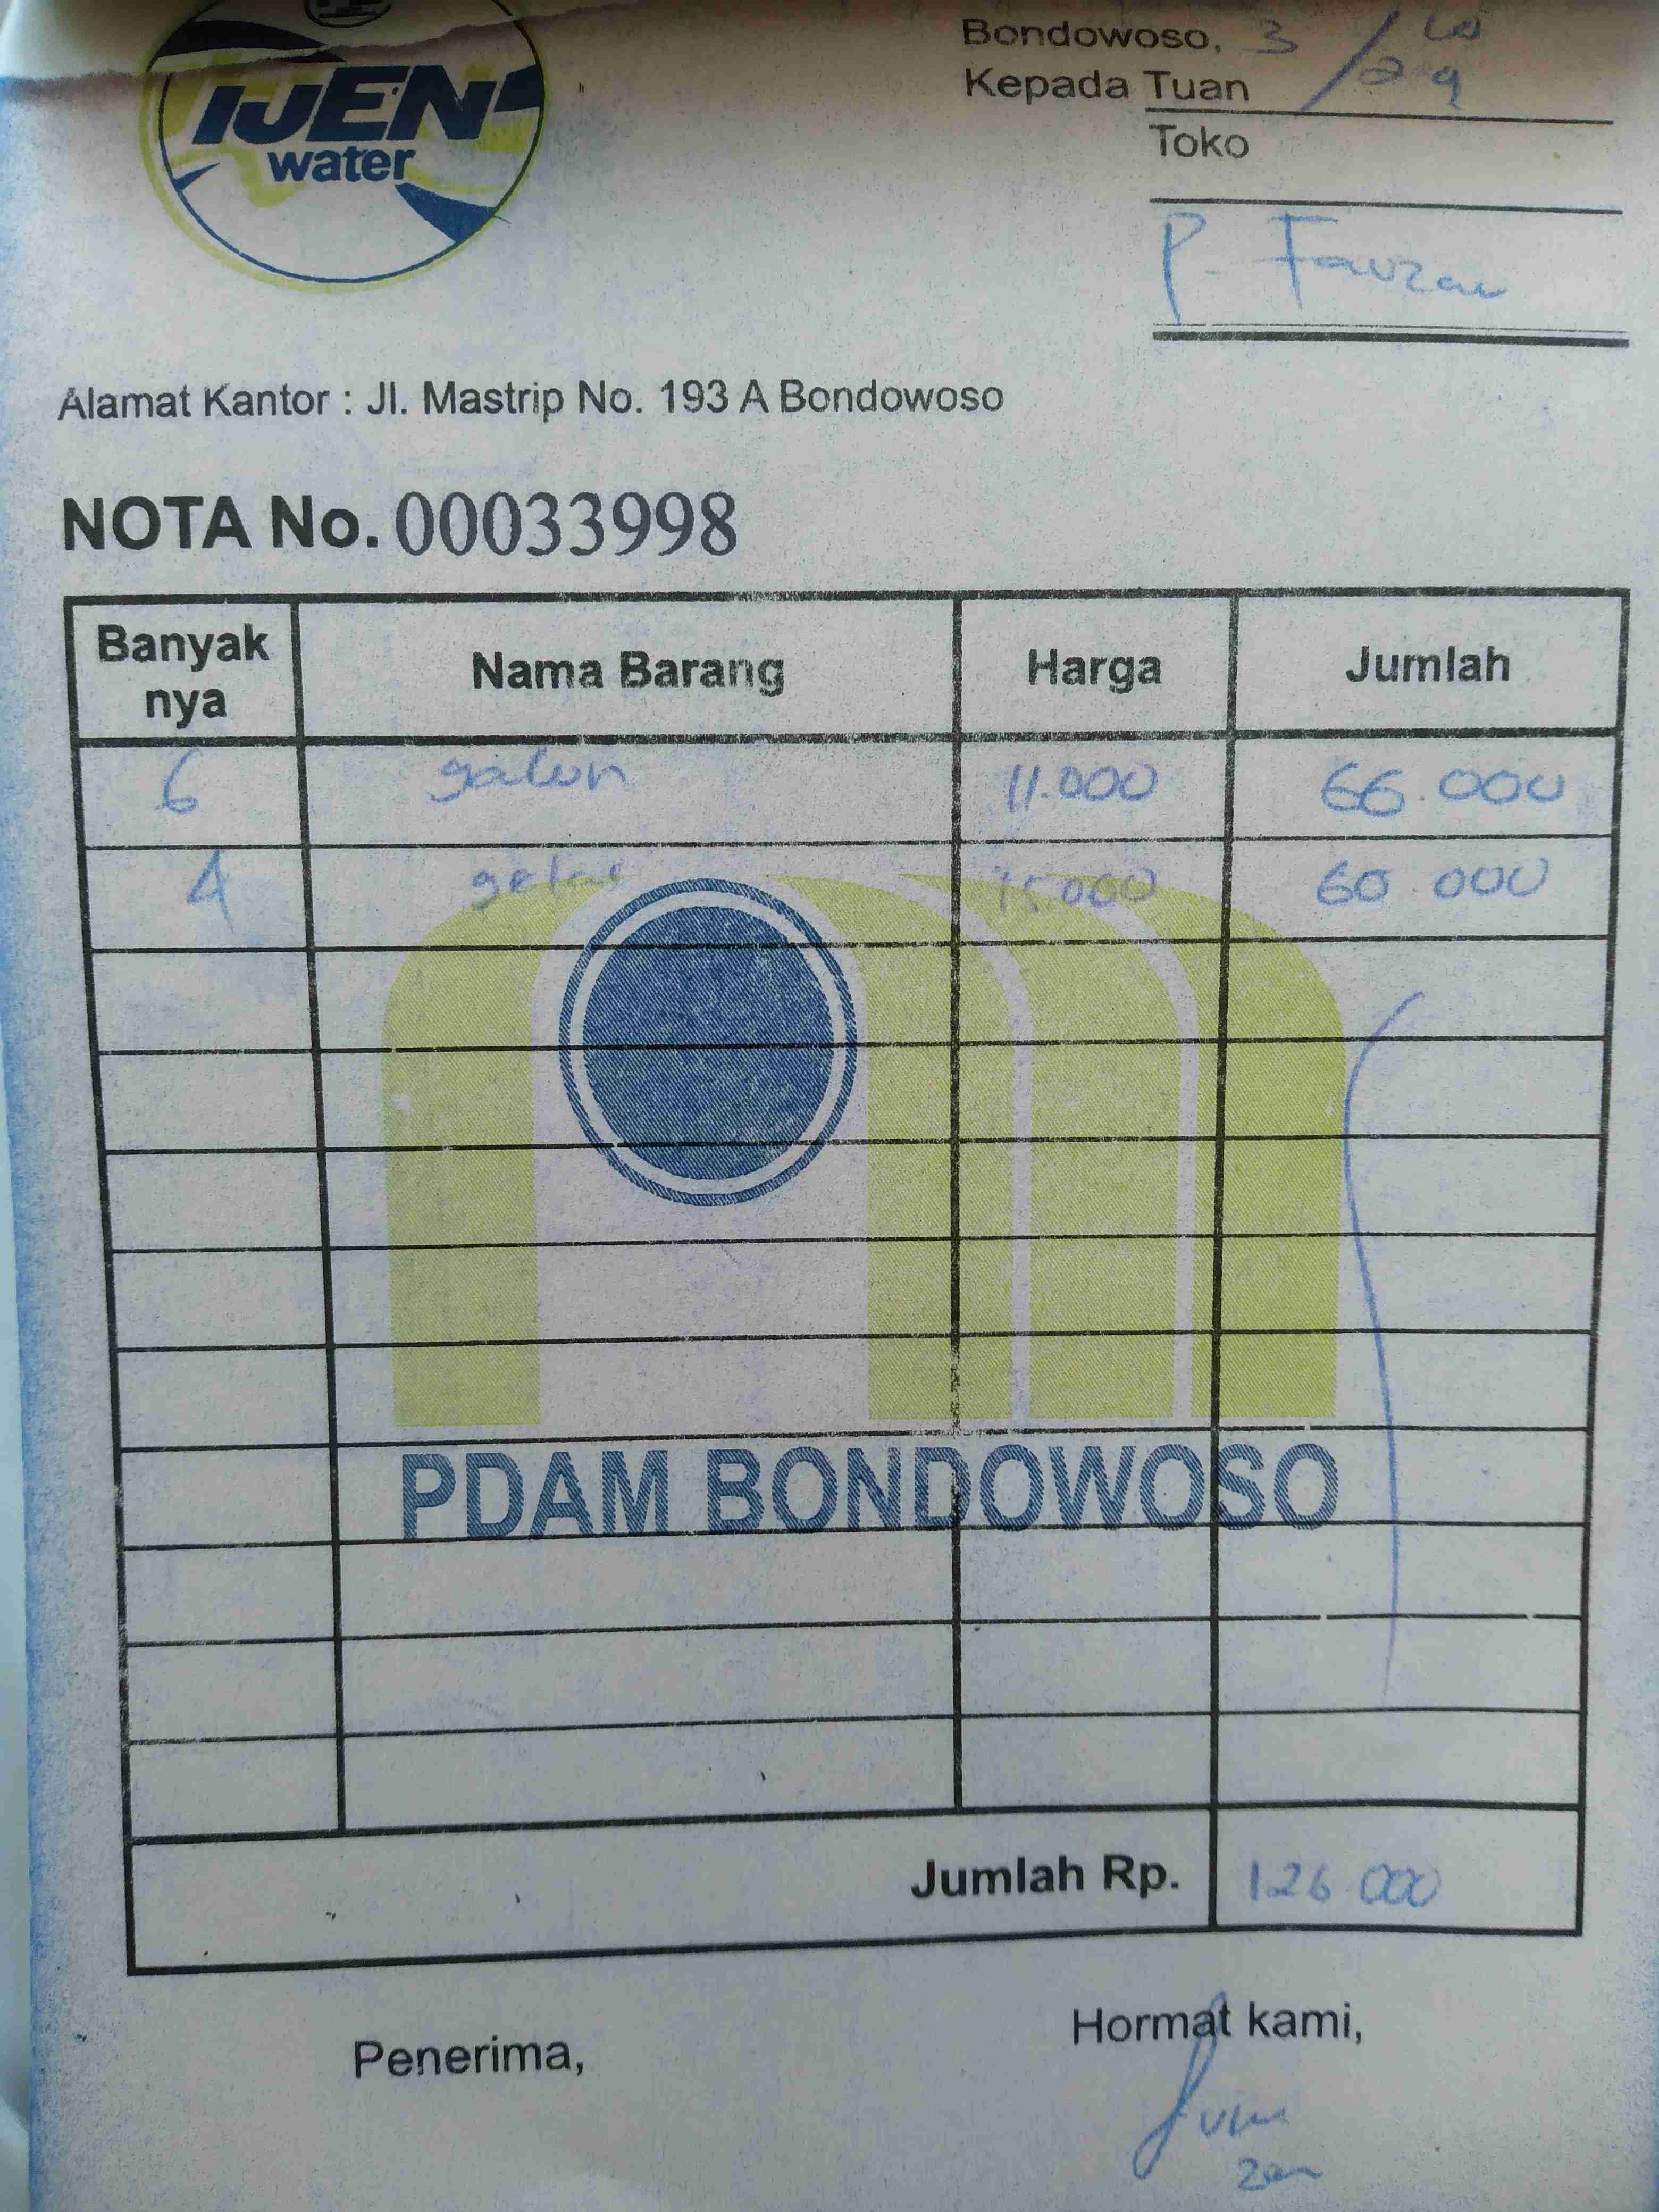 IJEN
water
Bondowoso, 3 /
Kepada Tuan
Toko
P. Fauzan
Alamat Kantor : Jl. Mastrip No. 193 A Bondowoso
NOTA No. 00033998
Banyak nya Nama Barang Harga Jumlah
6 galon 11.000 66.000
4 gelas 15.000 60.000
PDAM BONDOWOSO
Jumlah Rp. 126.000
Penerima, Hormat kami,